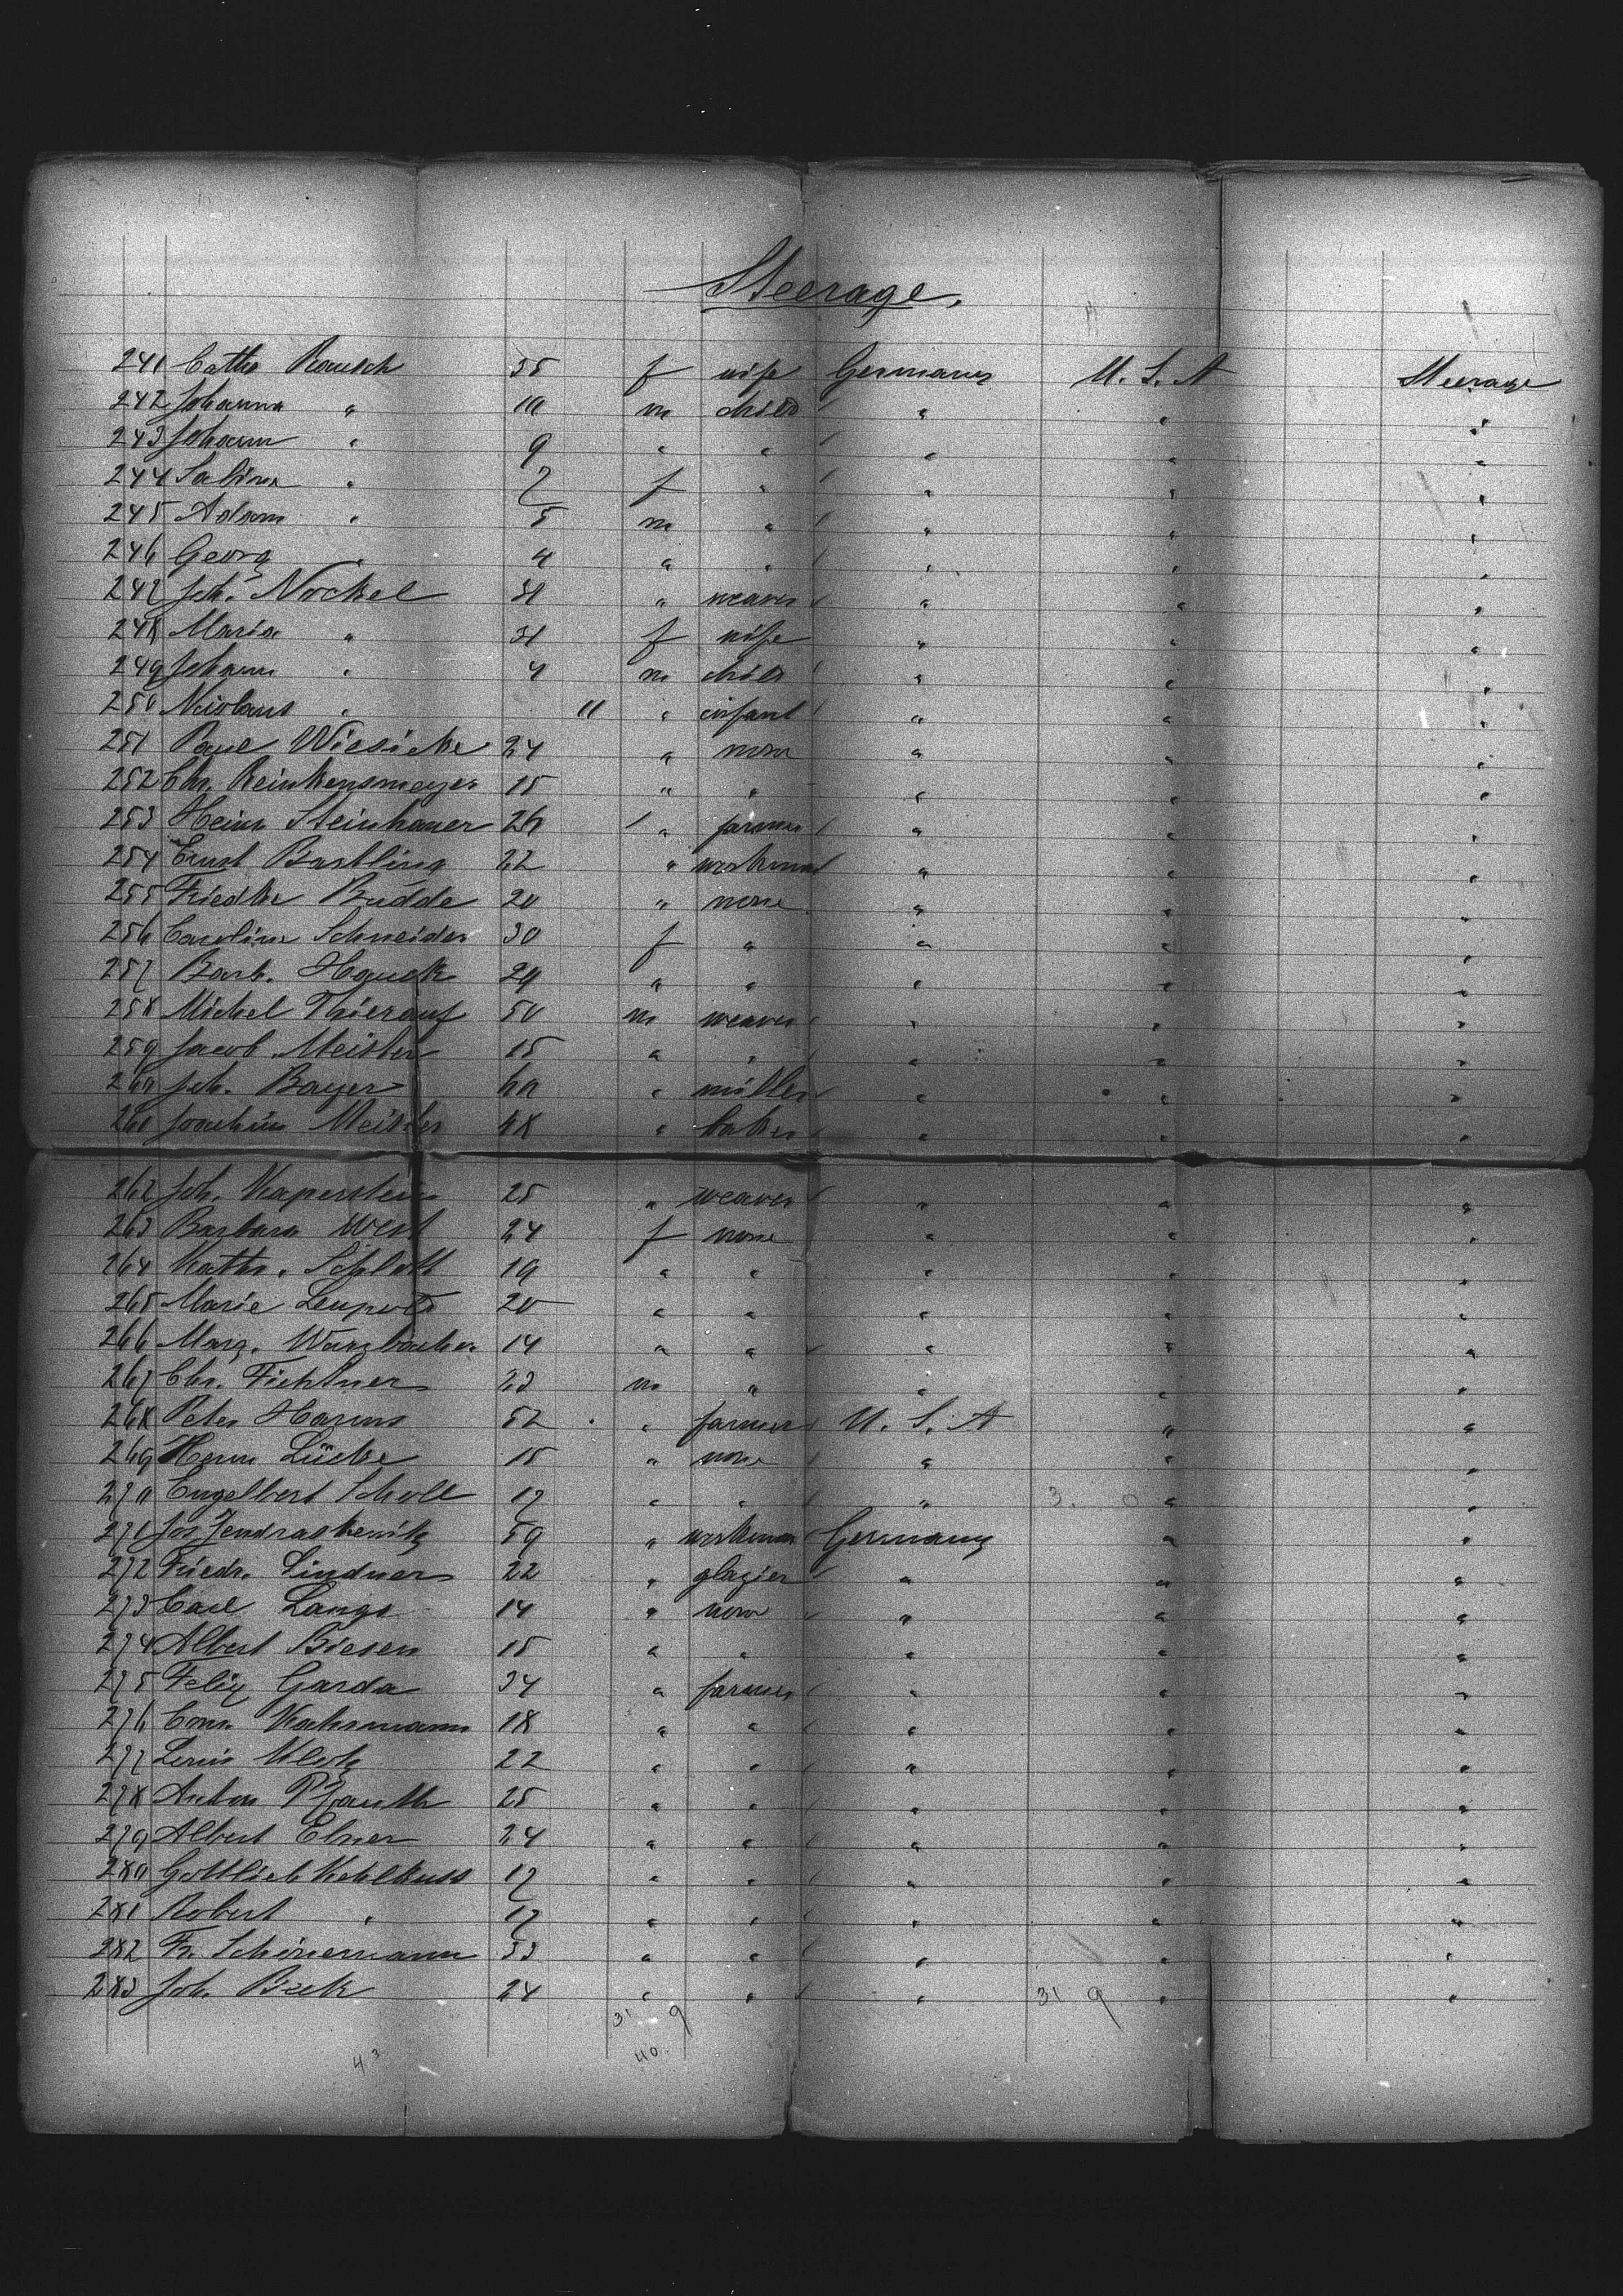 Steerage.
241 Cathe Rausch 35 f wife Germany U. S. A Steerage
242 Johanna " 10 m child " " "
243 Johann " 9 " " " " "
244 Sabina " 7 f " " " "
245 Adam " 5 m " " " "
246 Georg " 4 " " " " "
247 Joh. Nockel 31 " weaver " " "
248 Maria " 31 f wife " " "
249 Johann " 4 m child " " "
250 Nicolaus " 11 " infant " " "
251 Paul Wiesicke 24 " none " " "
252 Chr. Reinkensmeyer 15 " " " " "
253 Heinr Steinhauer 26 " farmer " " "
254 Ernst Bastling 22 " workman " " "
255 Friedke Budde 20 " none " " "
256 Caroline Schneider 30 f " " " "
257 Barb. Hauck 29 " " " " "
258 Michel Thierauf 50 m weaver " " "
259 Jacob Meister 15 " " " " "
260 Joh. Bayer 60 " miller " " "
261 Joachim Meister 48 " baker " " "
262 Joh. Kaperstein 25 " weaver " " "
263 Barbara West 24 f none " " "
264 Kathr. Schlott 19 " " " " "
265 Marie Leupold 20 " " " " "
266 Marg. Wurzbacher 14 " " " " "
267 Chr. Fichtner 23 m " " " "
268 Peter Harms 52 " farmer U. S. A " "
269 Herm Lücke 15 " none " " "
270 Engelbert Scholl 17 " " " 3. 0 " "
271 Jos Jendraskewitz 59 " workman Germany " "
272 Friedr. Lindner 22 " glazier " " "
273 Carl Lange 14 " none " " "
274 Albert Biesen 15 " " " " "
275 Felix Garda 34 " farmer " " "
276 Conr. Kachsmann 18 " " " " "
277 Louis Klotz 22 " " " " "
278 Anton Pfauth 25 " " " " "
279 Albert Elsner 24 " " " " "
280 Gottlieb Kehlkuss 17 " " " " "
281 Robert " 17 " " " " "
282 Fr. Schünemann 33 " " " " "
283 Joh. Beck 24 " " " 31 9 " "
31 9
43 40